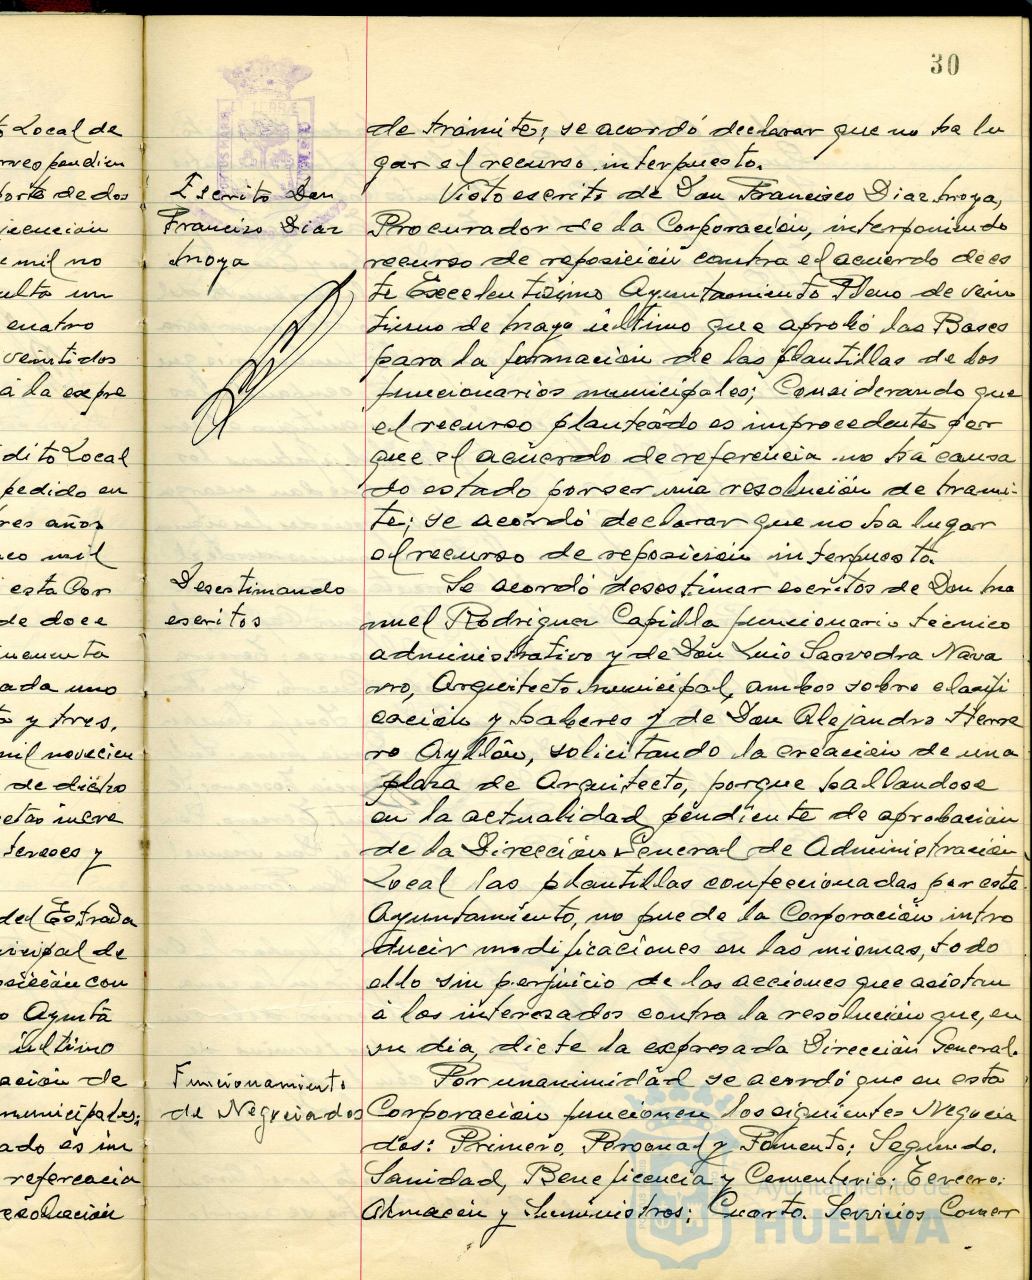 30
to Local de
rrespondien
porte de dos
ecución
e mil no
ulta un
cuatro
veintidos
á la expre
dito Local
pedido en
tres años
nco mil
esta Cor
de doce
incuenta
ada uno
y tres,
mil novecien
de dicho
etas incre
tereses y
del Estrada
nicipal de
osición con
o Ayuntа
último
ación de
municipales;
ado es im
referencia
resolución
Escrito Don
Francisco Diaz
Moya
Desestimando
escritos
Funcionamiento
de Negociados
de trámite; se acordó declarar que no ha lu
gar el recurso interpuesto.
Visto escrito de Don Francisco Diaz Moya,
Procurador de la Corporación, interponiendo
recurso de reposición contra el acuerdo de es
te Excelentísimo Ayuntamiento Pleno de vein
tiuno de Mayo último que aprobó las Bases
para la formación de las plantillas de los
funcionarios municipales; Considerando que
el recurso planteado es improcedente por
que el acuerdo de referencia no há causa
do estado por ser una resolución de trami-
te; se acordó declarar que no ha lugar
el recurso de reposición interpuesto.
Se acordó desestimar escritos de Don Ma
nuel Rodriguez Capilla funcionario técnico
administrativo y de Don Luis Saavedra Nava
rro, Arquitecto Municipal, ambos sobre clasifi
cación y haberes y de Don Alejandro Herre
ro Ayllón, solicitando la creación de una
plaza de Arquitecto, porque hallandose
en la actualidad pendiente de aprobación
de la Dirección General de Administración
Local las plantillas confeccionadas por este
Ayuntamiento, no puede la Corporación intro
ducir modificaciones en las mismas, todo
ello sin perjuicio de las acciones que asistan
á los interesados contra la resolución que, en
su dia, dicte la expresada Dirección General.
Por unanimidad se acordó que en esta
Corporación funcionen los siguientes Negocia
dos: Primero, Personal y Fomento; Segundo.
Sanidad, Beneficencia y Cementerio; Tercero:
Almacén y Suministros; Cuarto. Servicios Comer
Ayuntamiento de
HUELVA